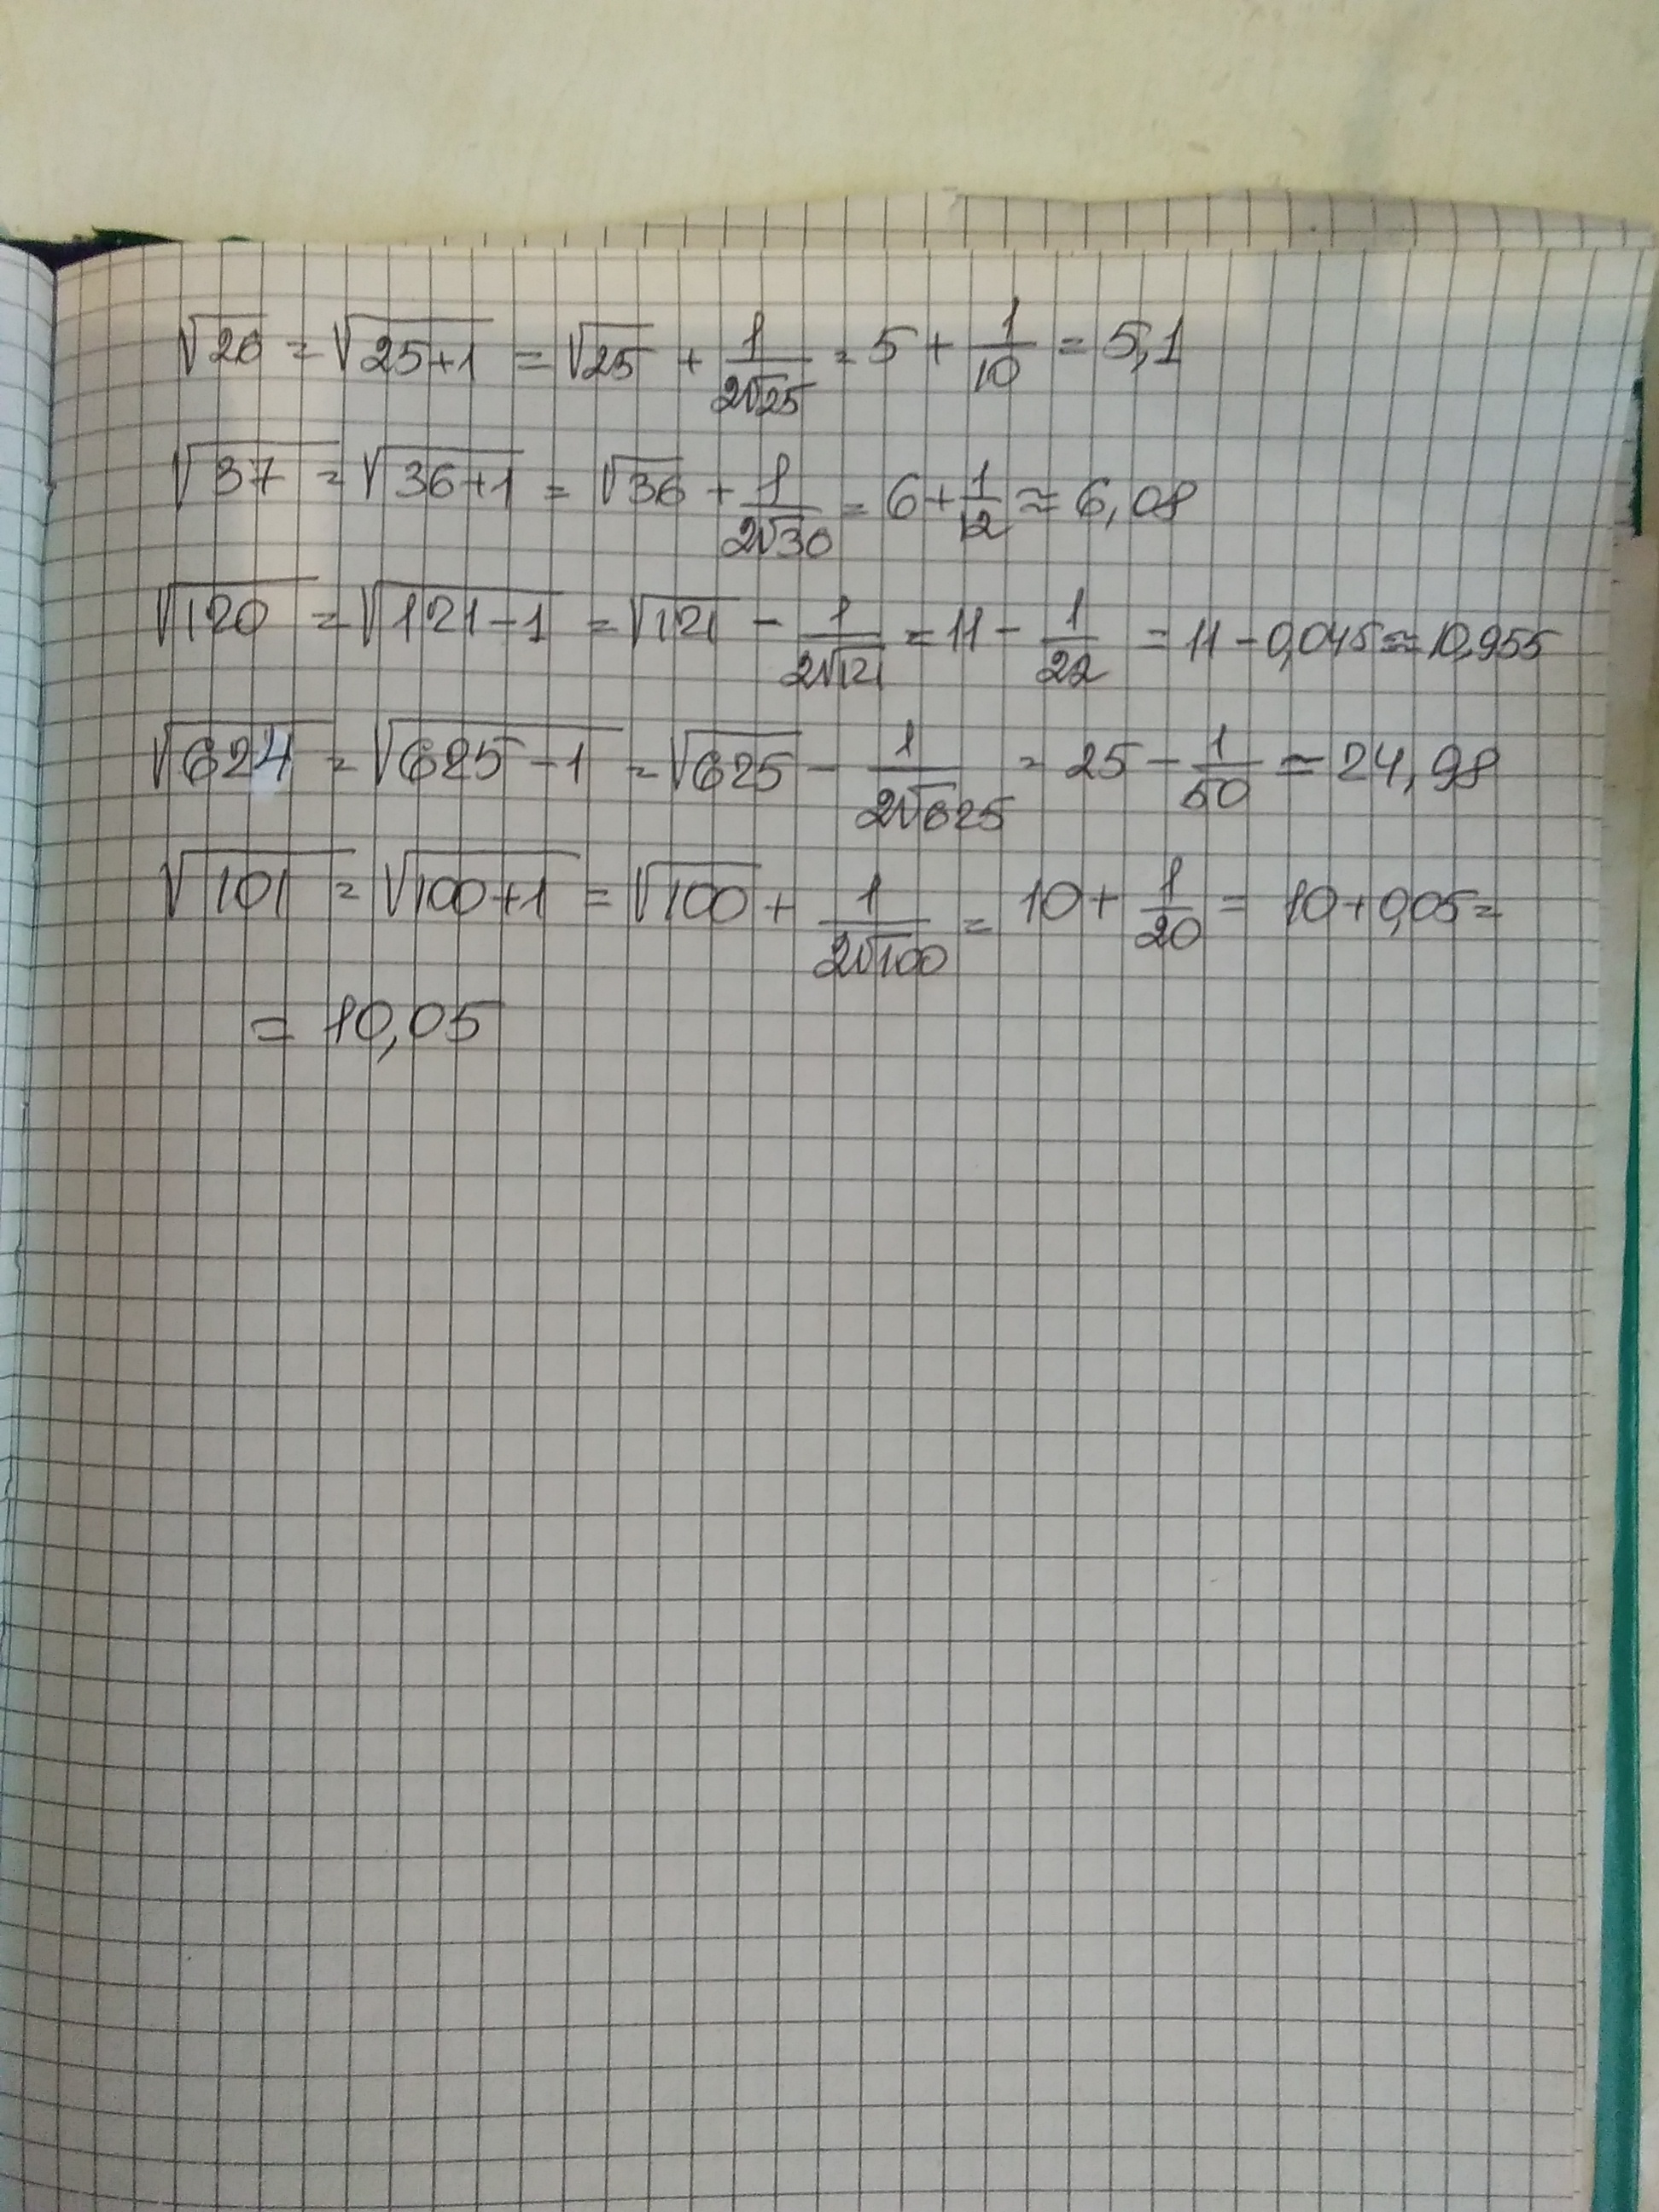 √26 = √25+1 = √25 + 1/2√25 = 5 + 1/10 = 5,1
√37 = √36+1 = √36 + 1/2√30 = 6 + 1/12 ≈ 6,08
√120 = √121-1 = √121 - 1/2√121 = 11 - 1/22 = 11 - 0,045 ≈ 10,955
√624 = √625-1 = √625 - 1/2√625 = 25 - 1/50 ≈ 24,98
√101 = √100+1 = √100 + 1/2√100 = 10 + 1/20 = 10+0,05 =
= 10,05